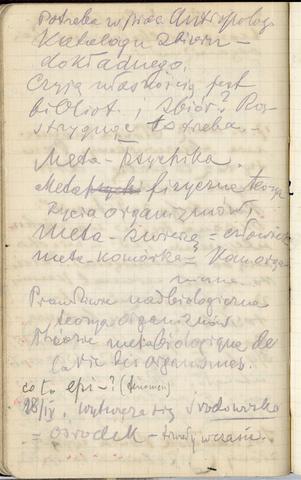 Potrzeba
Katalogu zbioru -
dokładnego.
Czyją własnością jest
bibliot. i zbiór? Roz-
strzygnąć to trzeba. -
Meta-Psychika.
Metapsych fizyczna teorja
życia organizmów.
meta-zwierzę = człowiek
meta-komórka =
Prawdziwie nadbiologiczna
teorja organizmów
Théorie métabiologique de
la vie des organismes.
co to epi-? (fenomen)
28/IX. wytwarza się środowisko
= ośrodek - trwały w czasie.